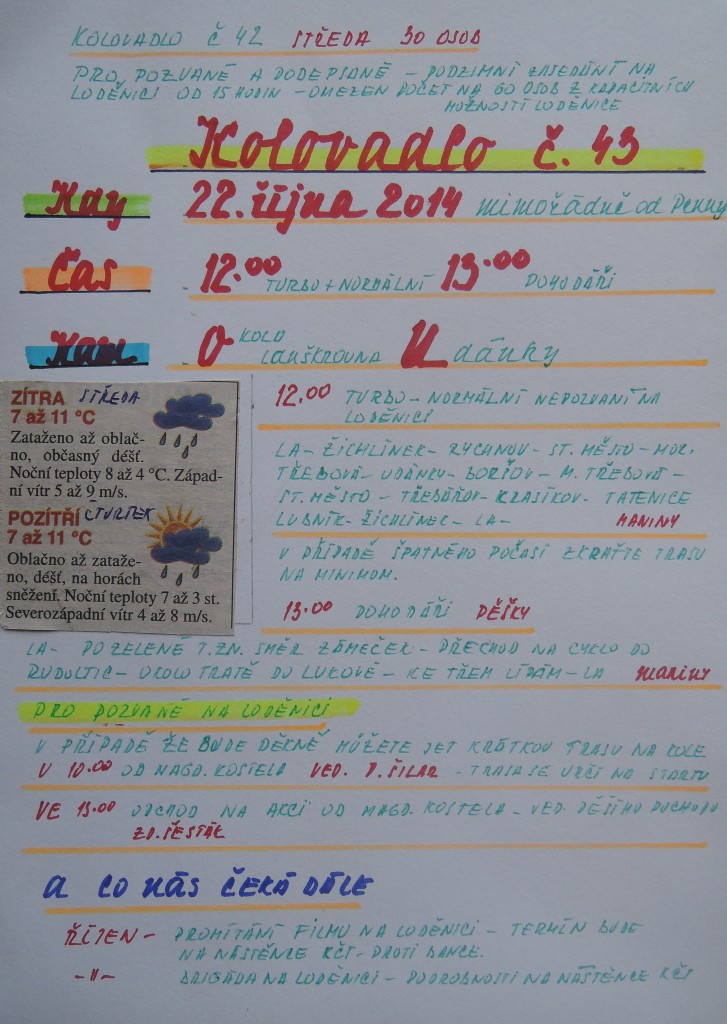 KOLOVADLO Č 42 STŘEDA 30 OSOB
PRO POZVANÉ A DODEPSANÉ - PODZIMNÍ ZASEDÁNÍ NA
LODĚNICI OD 15 HODIN - OMEZEN POČET NA 60 OSOB Z KAPACITNÍCH
MOŽNOSTÍ LODĚNICE
Kolovadlo č. 43
Kdy 22. října 2014 mimořádně od Penny
Čas 12.00 TURBO + NORMÁLNÍ 13.00 POHODÁŘI
Kam O KOLO LANŠKROUNA U dánky
ZÍTRA STŘEDA
7 až 11 °C
Zataženo až oblač-
no, občasný déšť.
Noční teploty 8 až 4 °C. Západ-
ní vítr 5 až 9 m/s.
POZÍTŘÍ ČTVRTEK
7 až 11 °C
Oblačno až zataže-
no, déšť, na horách
sněžení. Noční teploty 7 až 3 st.
Severozápadní vítr 4 až 8 m/s.
12.00 TURBO - NORMÁLNÍ NEPOZVANÍ NA
LODĚNICI
LA - ŽICHLÍNEK - RYCHNOV - ST. MĚSTO - MOR.
TŘEBOVÁ - UDÁNKY - BORŠOV - M. TŘEBOVÁ -
ST. MĚSTO - TŘEBAŘOV - KRASÍKOV - TATENICE
LUBNÍK - ŽICHLÍNEK - LA - MANINY
V PŘÍPADĚ ŠPATNÉHO POČASÍ ZKRAŤTE TRASU
NA MINIMUM.
13.00 POHODÁŘI PĚŠKY
LA - PO ZELENÉ T. ZN. SMĚR ZÁMEČEK - PŘECHOD NA CYKLO DO
RUDOLTIC - OKOLO TRATĚ DO LUKOVÉ - KE TŘEM LÍPÁM - LA MANINY
PRO POZVANÉ NA LODĚNICI
V PŘÍPADĚ ŽE BUDE PĚKNĚ MŮŽETE JET KRÁTKOU TRASU NA KOLE
V 10.00 OD MAGD. KOSTELA VED. P. ŠILAR - TRASA SE URČÍ NA STARTU
VE 13.00 ODCHOD NA AKCI OD MAGD. KOSTELA - VED. PĚŠÍHO POCHODU
ZD. ŠESTÁK
A CO NÁS ČEKÁ DÁLE
ŘÍJEN - PROMÍTÁNÍ FILMU NA LODĚNICI - TERMÍN BUDE
NA NÁSTĚNCE KČT - PROTI BANCE.
-"- BRIGÁDA NA LODĚNICI - PODROBNOSTI NA NÁSTĚNCE KČT